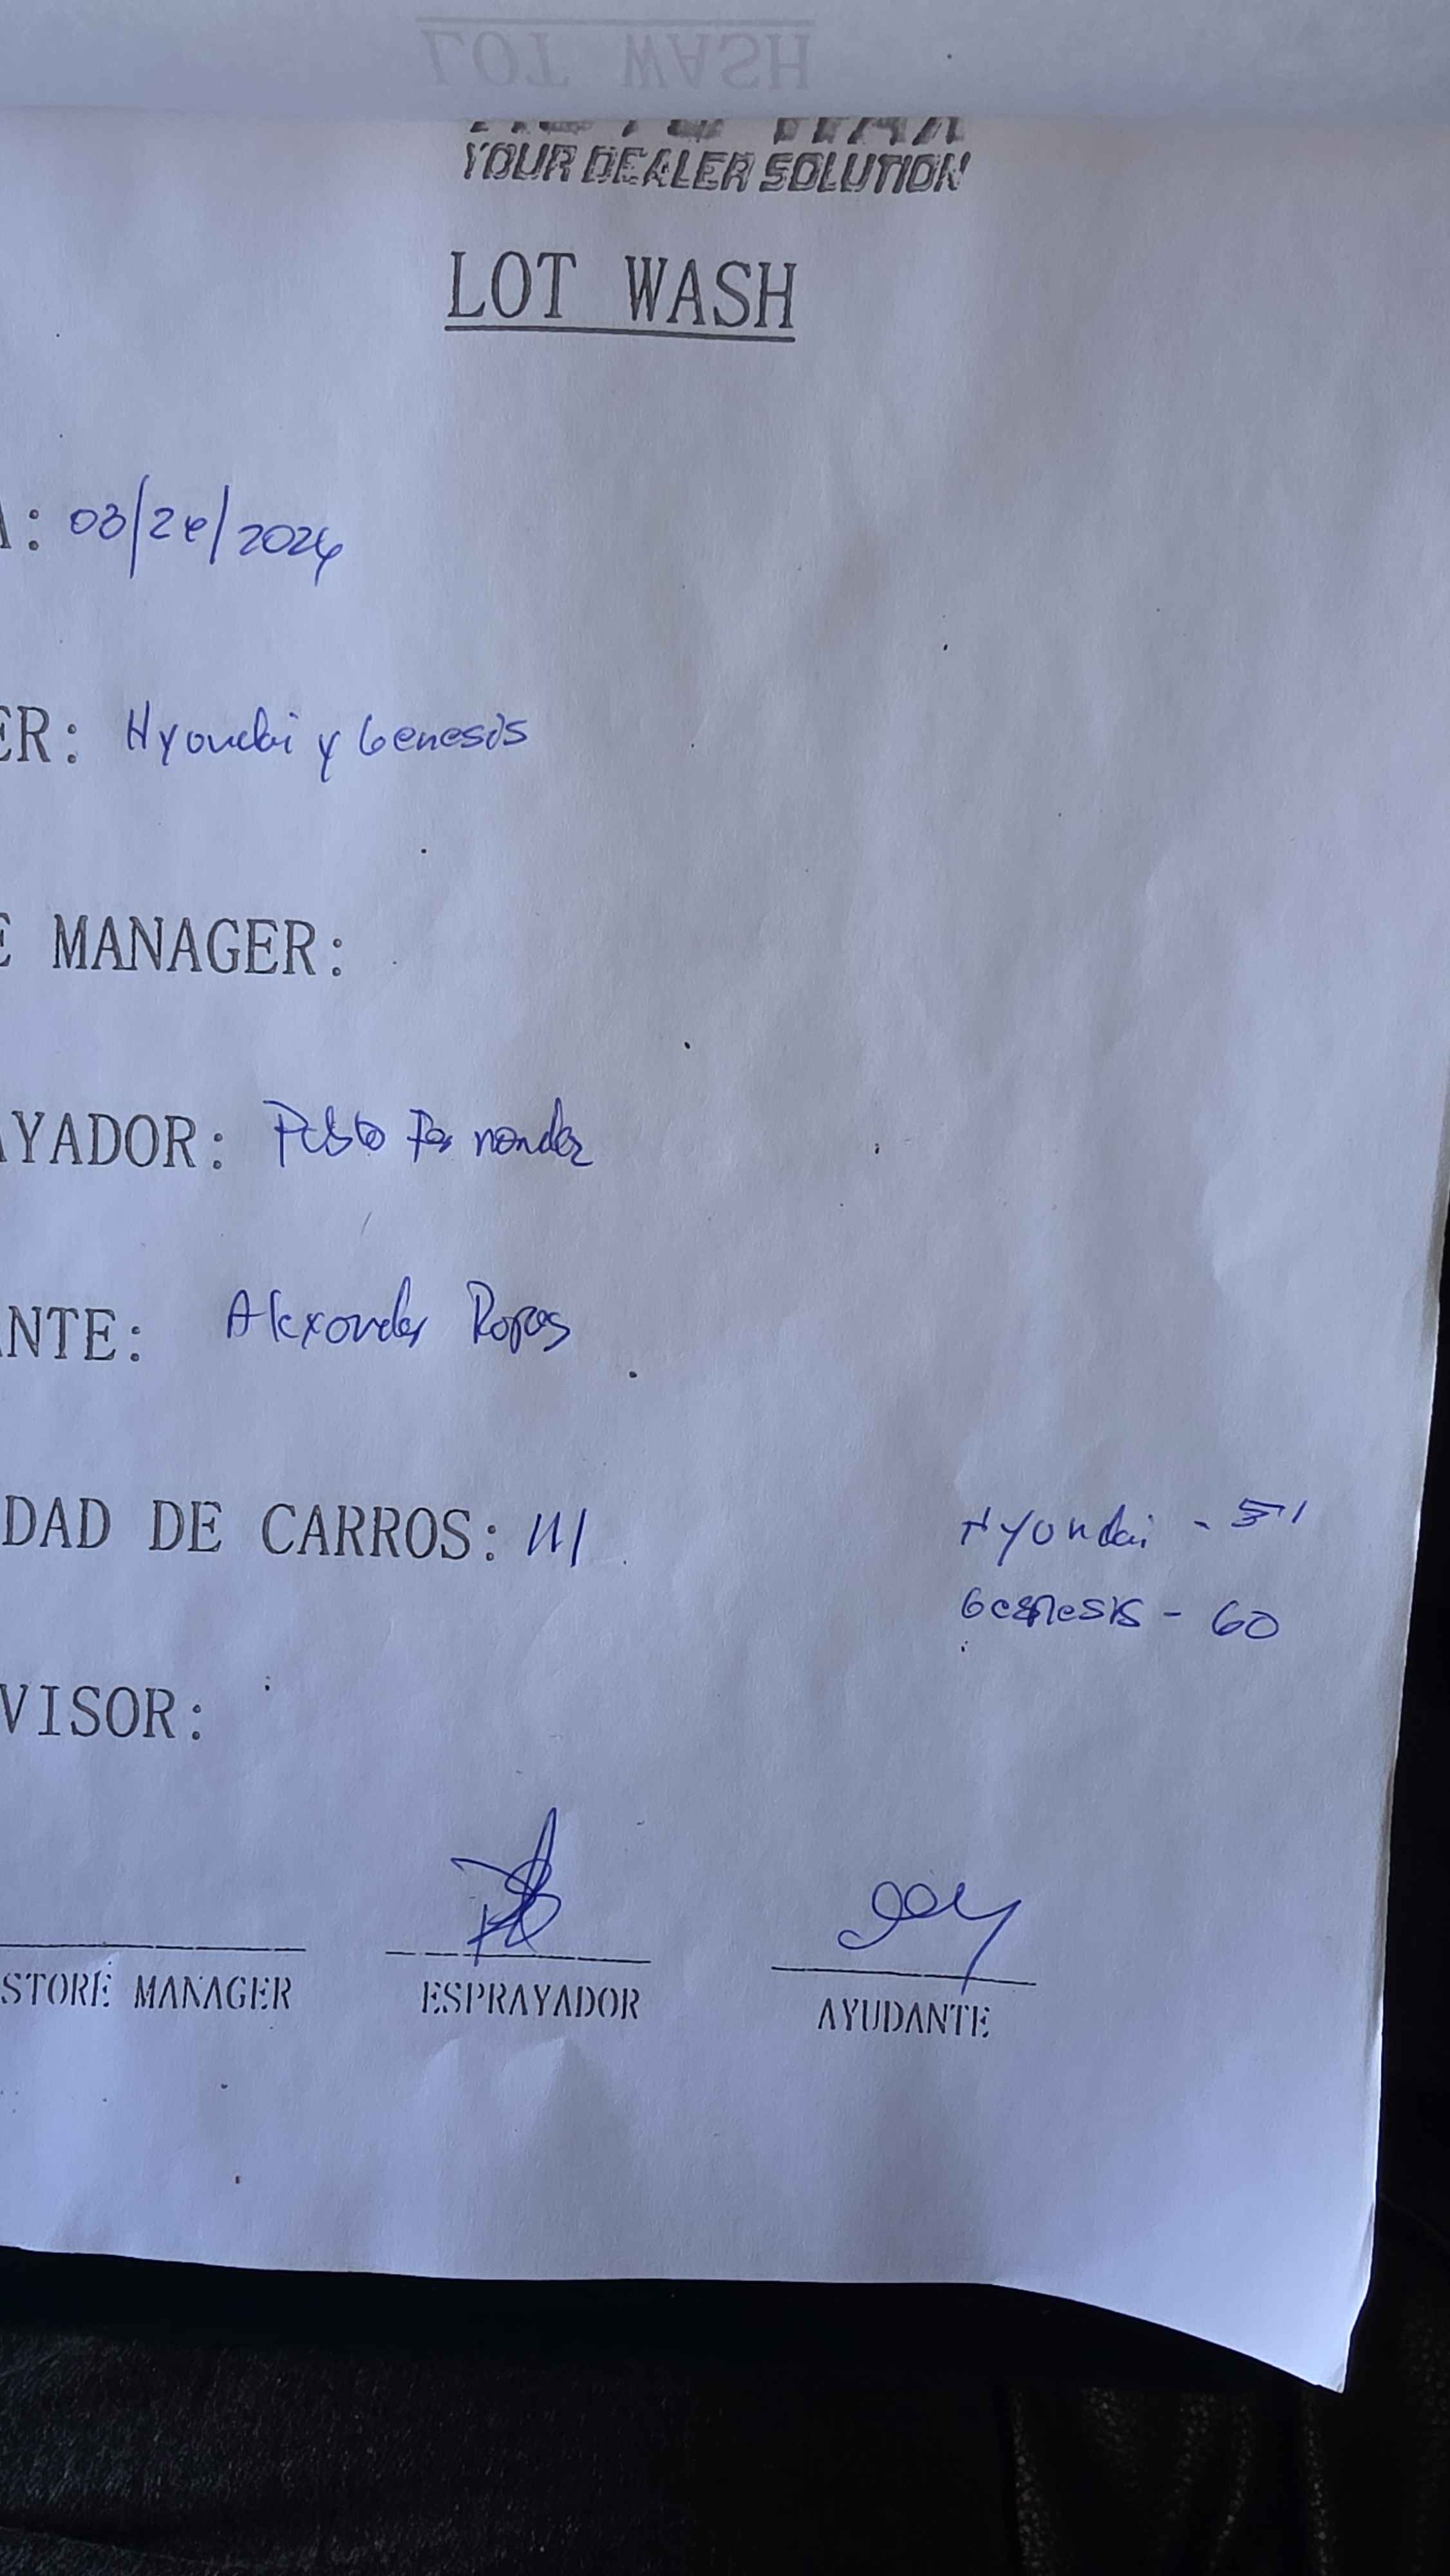 LOT WASH
YOUR DEALER SOLUTION
LOT WASH
A: 03/24/2024
ER: Hyundai y Genesis
E MANAGER:
AYADOR: Pablo Fernandez
ANTE: Alexander Rojas
DAD DE CARROS: 111
Hyundai - 51
Genesis - 60
VISOR:
STORE MANAGER ESPRAYADOR AYUDANTE